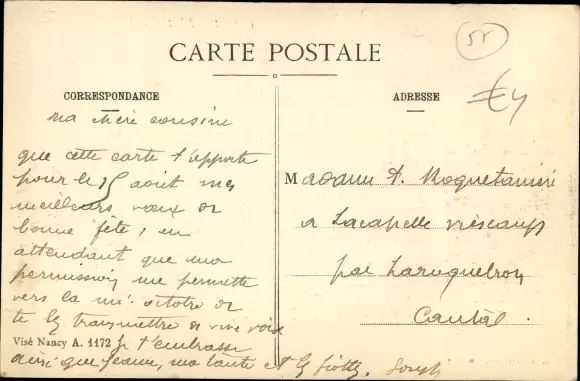 58
CARTE POSTALE
€4
CORRESPONDANCE
ADRESSE
Ma chère cousine
que cette carte t'apporte
pour le 15 août mes
meilleurs vœux de
bonne fête, en
attendant que ma
permission me permette
vers la mi octobre de
te les transmettre de vive voix
Visé Nancy A. 1172 Je t'embrasse
ainsi que Jeanne, ma tante et les Joseph
Madame A.
a Lacapelle Viescamp
par Laroquebrou
Cantal